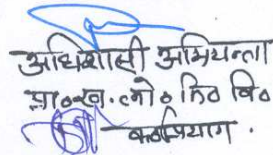 अधिशासी अभियन्ता
प्रा०ख०लो०नि०वि०
कर्णप्रयाग.